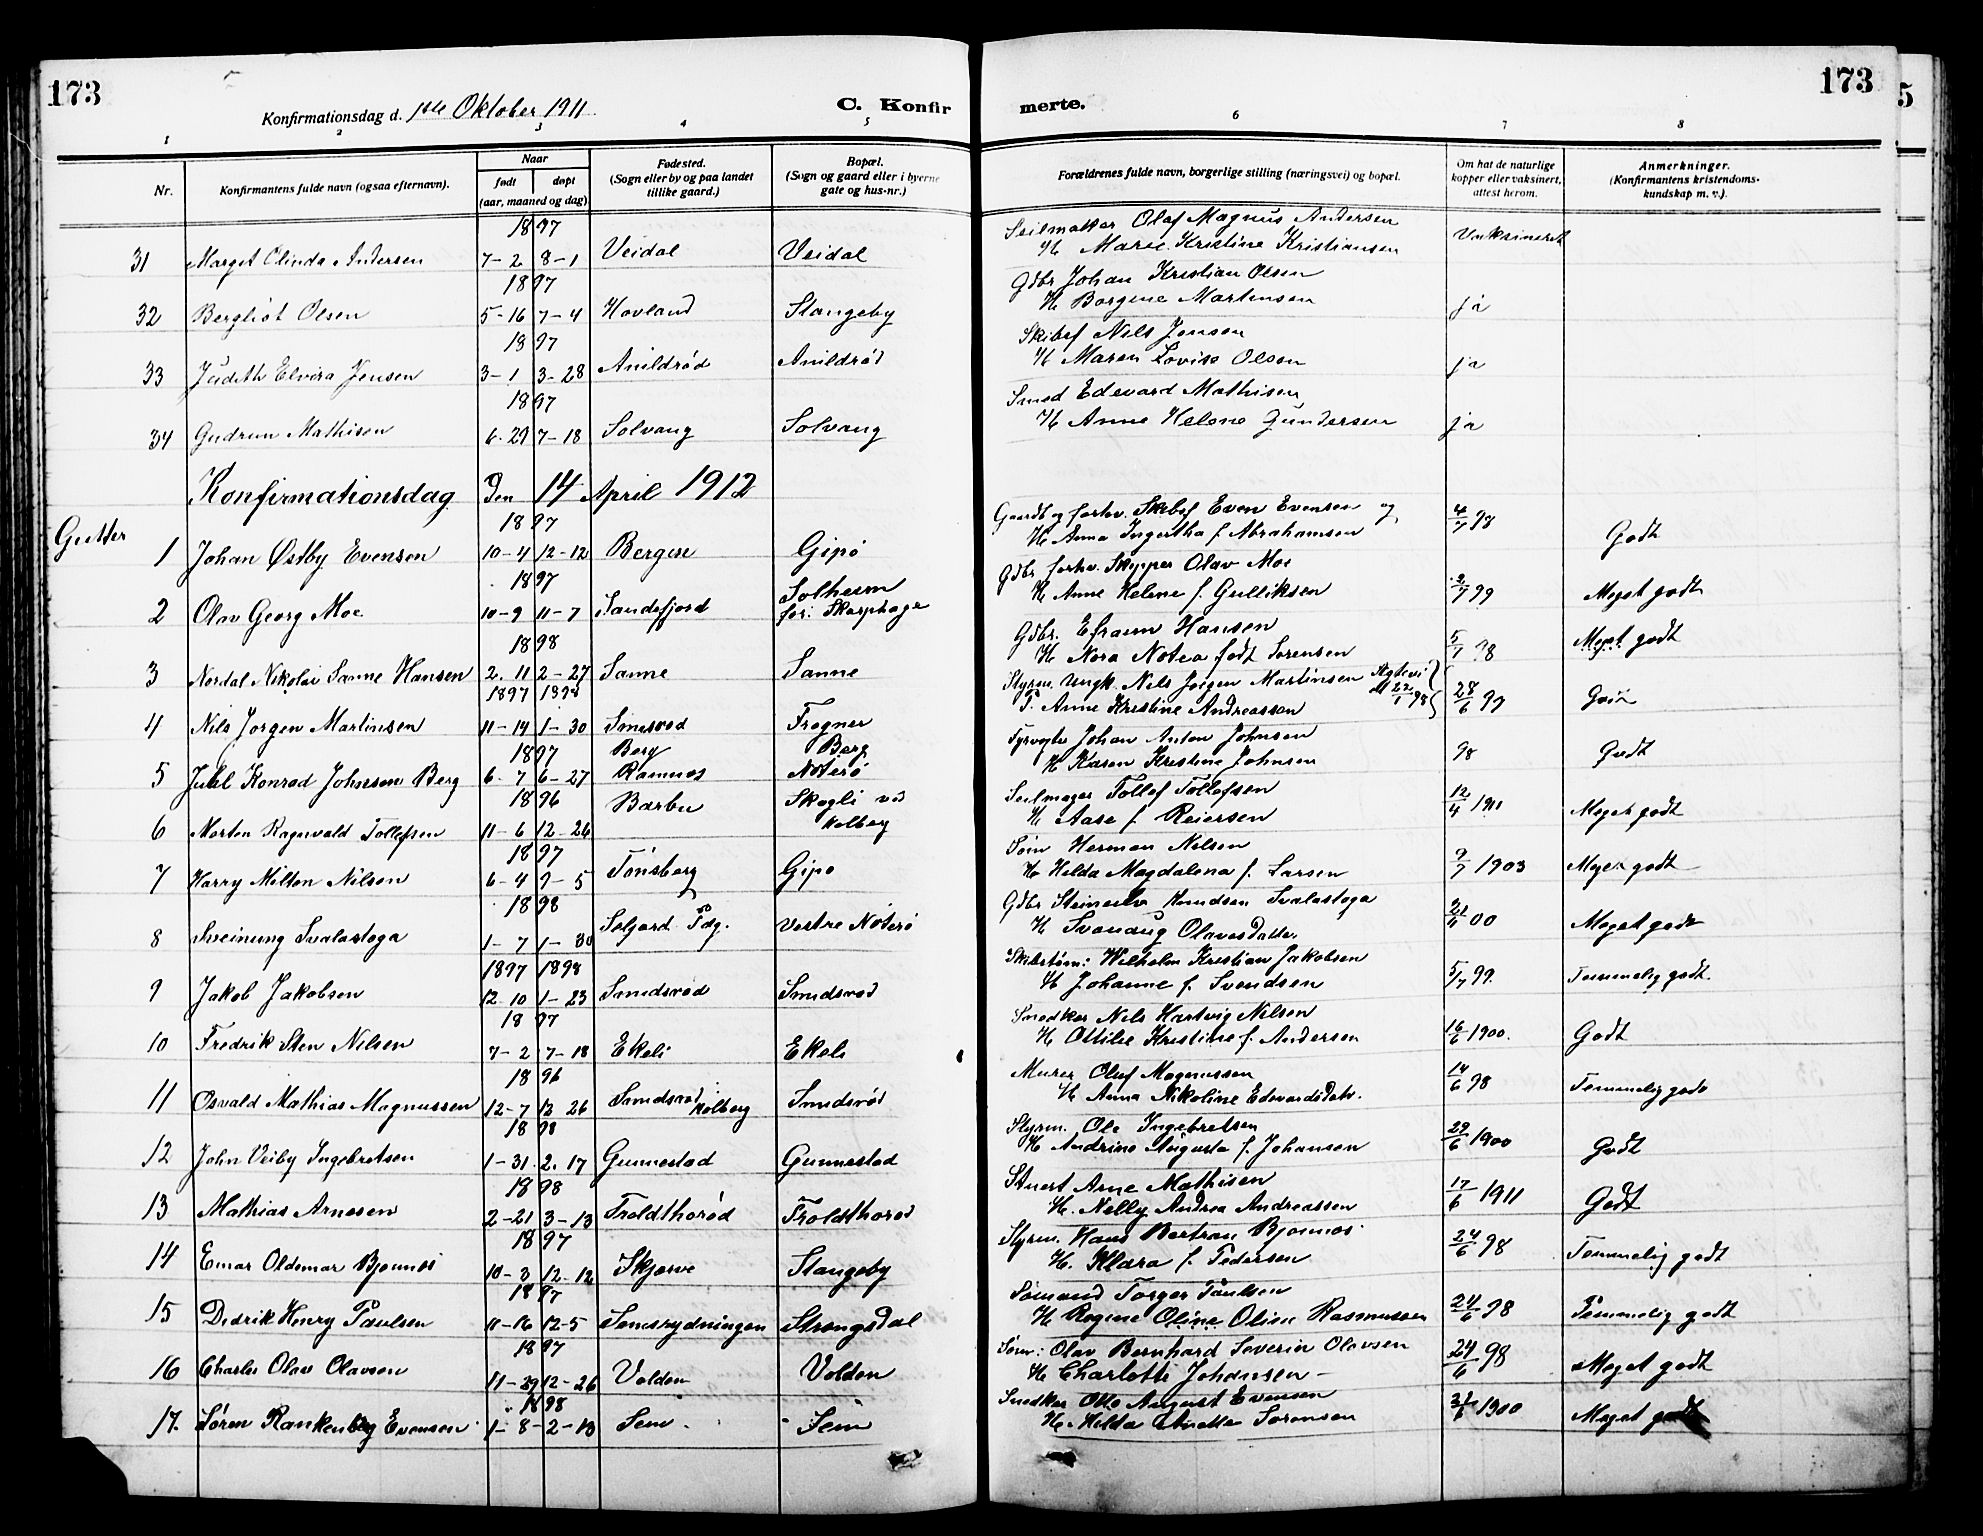 173
Konfirmationsdag d. 1ste Oktober 1911.
C. Konfirmerte.
173
5
1 2 3 4 5 6 7 8
Nr.
Konfirmantens fulde navn (ogsaa efternavn).
Naar
født døpt
(aar, maaned og dag)
Fødested.
(Sogn eller by og paa landet
tillike gaard.)
Bopæl.
(Sogn og gaard eller i byerne
gate og hus-nr.)
Forældrenes fulde navn, borgerlige stilling (næringsvei) og bopæl.
Om hat de naturlige
kopper eller vaksinert,
attest herom.
Anmerkninger.
(Konfirmantens kristendoms-
kundskap m. v.).
1897 Seilmaker Olaf Magnus Andersen
31 Margit Olinda Andersen 7-2 8-1 Veidal Veidal H Marie Kristine Kristiansen Vaksineret
1897 Gdbr Johan Kristian Olsen
32 Bergliot Olsen 5-16 7-4 Hovland Stangeby H Borgine Martinsen ja
1897 Skibsf Nils Jensen
33 Judith Elvira Jensen 3-1 3-28 Anildrød Anildrød H Maren Lovise Olsen ja
1897 Smed Edevard Mathisen
34 Gudrun Mathisen 6-29 7-18 Solvang Solvang H Anne Helene Gundersen ja
Konfirmationsdag Den 14 April 1912
Gutter
1897 Gaardb og forhv. Skibsf Even Evensen og
1 Johan Østby Evensen 10-4 12-12 Bergan Gipø H Anna Ingertha f Abrahamsen 4/7 98 Godt
1897 Gdbr forhv. Skipper Olav Moe
2 Olav Georg Moe 10-9 11-7 Sandefjord Solheim for: Skarphage H Anne Helene f. Gulliksen 3/7 99 Meget godt
1898 Gdbr. Efraim Hansen
3 Nordal Nikolai Sanne Hansen 2-11 2-27 Sanne Sanne H Nora Notea født Sørensen 5/7 98 Meget godt
1897 1898 Styrm. Ungk. Nils Jørgen Martinsen
4 Nils Jørgen Martinsen 11-14 1-30 Smidsrød Frogner P. Anne Kristine Andreassen 28/6 99 Godt
1897 Berg Berg Fyrvogter Johan Anton Johnsen
5 Juhl Konrad Johnsen Berg 6-7 6-27 Ramnes Nøterø H Karen Kristine Johnsen 98 Godt
1896 Seilmager Tollef Tollefsen
6 Morten Ragnvald Tollefsen 11-6 12-26 Barbu Skogli ved Kolberg H Aase f. Reiersen 12/4 1911 Meget godt
1897 Søm Herman Nilsen
7 Harry Milton Nilsen 6-4 9-5 Tønsberg Gipø H Hilda Magdalena f. Larsen 9/7 1903 Meget godt
1898 Gdbr Steinulv Knudsen Svalastoga
8 Sveinung Svalastoga 1-7 1-30 Seljord Pdg. Vestre Nøterø H Svanaug Olavesdatter. 21/4 00 Meget godt
1897 1898 Skibstøm: Wilhelm Kristian Jakobsen
9 Jakob Jakobsen 12-10 1-23 Smidsrød Smidsrød H Johanne f. Svendsen 5/7 99. Temmelig godt.
1897 Snedker Nils Hartvig Nilsen
10 Fredrik Sten Nilsen 7-2 7-18 Ekeli Ekeli H Ottilie Kristine f. Andersen 16/6 1900. Godt
1896 Murer Oluf Magnussen
11 Osvald Mathias Magnussen 12-7 12 26 Smidsrød Kolberg Smidsrød H Anna Nikoline Edevardsdatr. 14/6 98 Temmelig godt
1898 Styrm. Ole Ingebretsen
12 John Veiby Ingebretsen 1-31 2-17 Gunnestad Gunnestad H Andrine Augusta f. Johansen 29/6 1900 Godt
1898 Stuert Arne Mathisen
13 Mathias Arnesen 2-21 3-13 Froldthorød Froldthorød H. Nelly Andrea Andreassen 17/6 1911 Godt
1897 Styrm. Hans Bertran Bjønnes
14 Einar Oldemar Bjønnes 10-3 12-12 Skjerve Stangeby H. Klara f. Pedersen 24/6 98 Temmelig godt
1897 Sømand Torger Paulsen
15 Didrik Henry Paulsen 11-16 12-5 Semsrydningen Strengsdal H Regine Oline Olsen Rasmussen 24/6 98 Temmelig godt
1897 Søm: Olav Bernhard Severin Olavsen
16 Charles Olav Olavsen 11-29 12-26 Volden Volden H Charlotte Johansen - 24/6 98 Meget godt
1898 Snedker Otto August Evensen
17. Søren Rankenberg Evensen 1-8-2-13 Sem Sem H. Hilda Anette Sørensen 1900 Meget godt